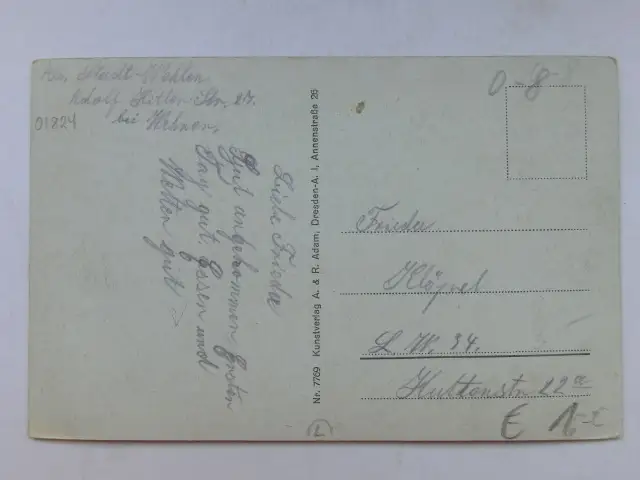 Stadt-Wehlen
Adolf Hitler-Str. 27.
bei Hübner,
01824
Liebe Frieda
Gut angekommen Ersten
Tag gut. Essen und
Wetter gut
Nr. 7769 Kunstverlag A. & R. Adam, Dresden-A. I, Annenstraße 25
0-8
Frieda
Kläpel
L. W. 34.
Huttenstr. 22
L
E 1